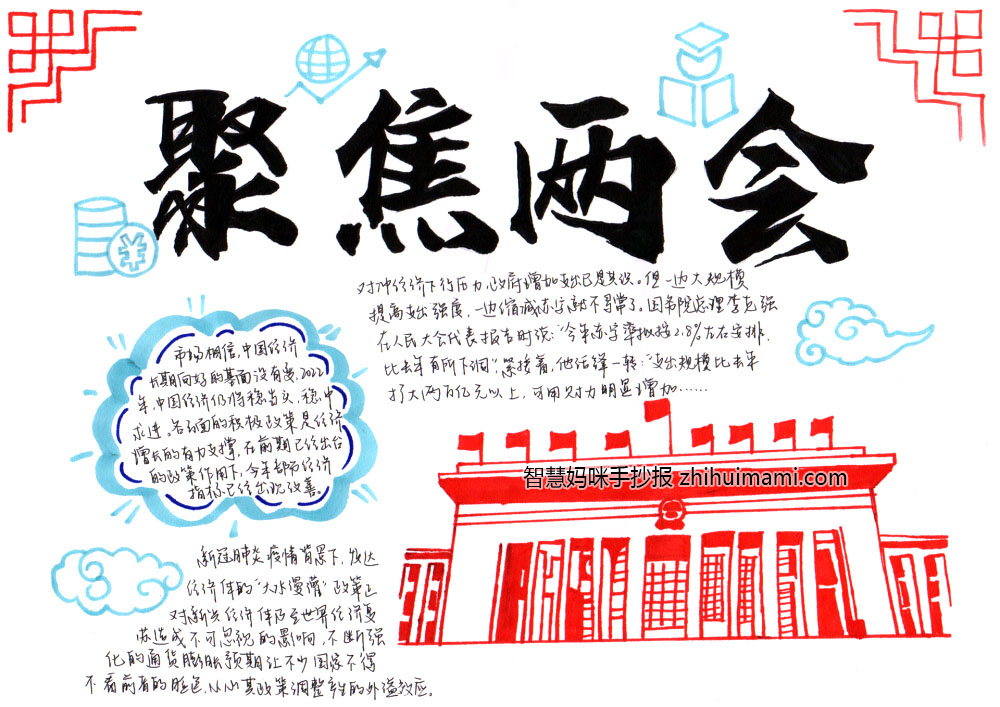 聚焦两会
对冲经济下行压力,政府增加支出已是共识。但一边大规模
提高支出强度,一边缩减赤字就不寻常了。国务院总理李克强
在人民大会代表报告时说:“今年赤字率拟按2.8%左右安排,
比去年有所下调”。紧接着,他话锋一转:“支出规模比去年
扩大两万亿元以上,可用财力明显增加……
市场相信,中国经济
长期向好的基面没有变,2022
年,中国经济仍将稳当头,稳中
求进。各方面的积极政策是经济
增长的有力支撑,在前期已经出台
的政策作用下,今年部分经济
指标已经出现改善。
智慧妈咪手抄报 zhihuimami.com
新冠肺炎疫情背景下,发达
经济体的“大水漫灌”政策已
对新兴经济体乃至世界经济复
苏造成不可忽视的影响,不断强
化的通货膨胀预期让不少国家不得
不看前者的脸色,以如其政策调整产生的外溢效应。